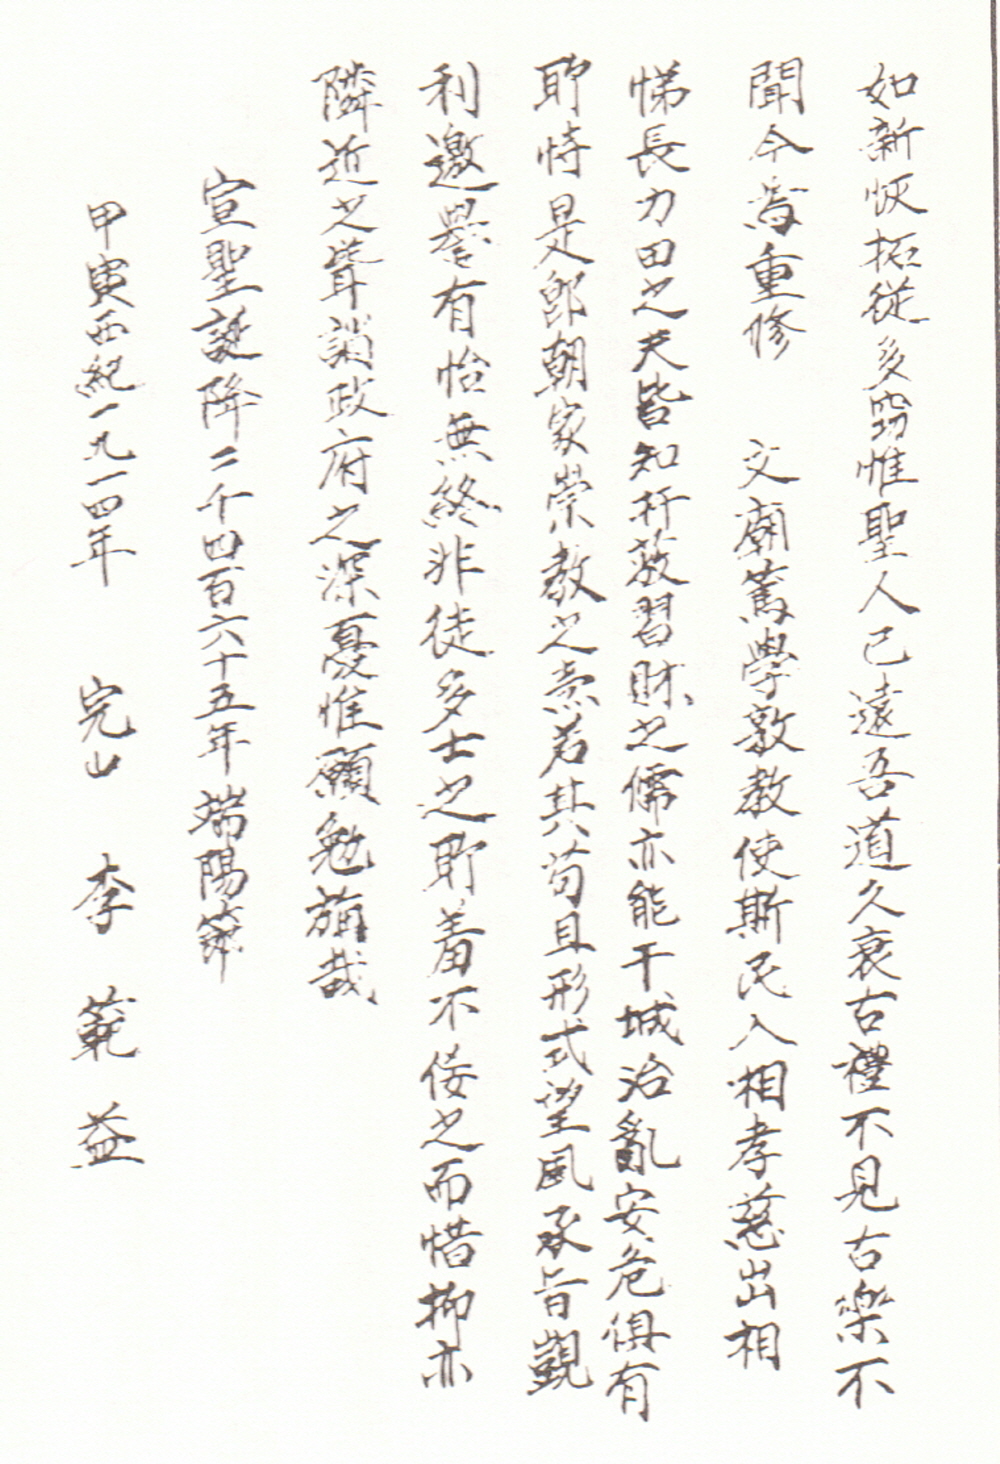 如新恢拓從多窃惟聖人已遠吾道久衰古禮不見古樂不
聞今焉重修 文廟篤學敦教使斯民入相孝慈出相
悌長力田之夫皆知扞菽習財之儒亦能干城治亂安危俱有
所恃是卽朝家崇教之意若其苟且形式望風承旨觀
利邀譽有怡無終非徒多士之所羞不佞之而惜抑亦
隣近之訾誚政府之深憂惟願勉旃哉
宣聖誕降二千四百六十五年端陽節
甲寅西紀一九一四年 完山 李範益